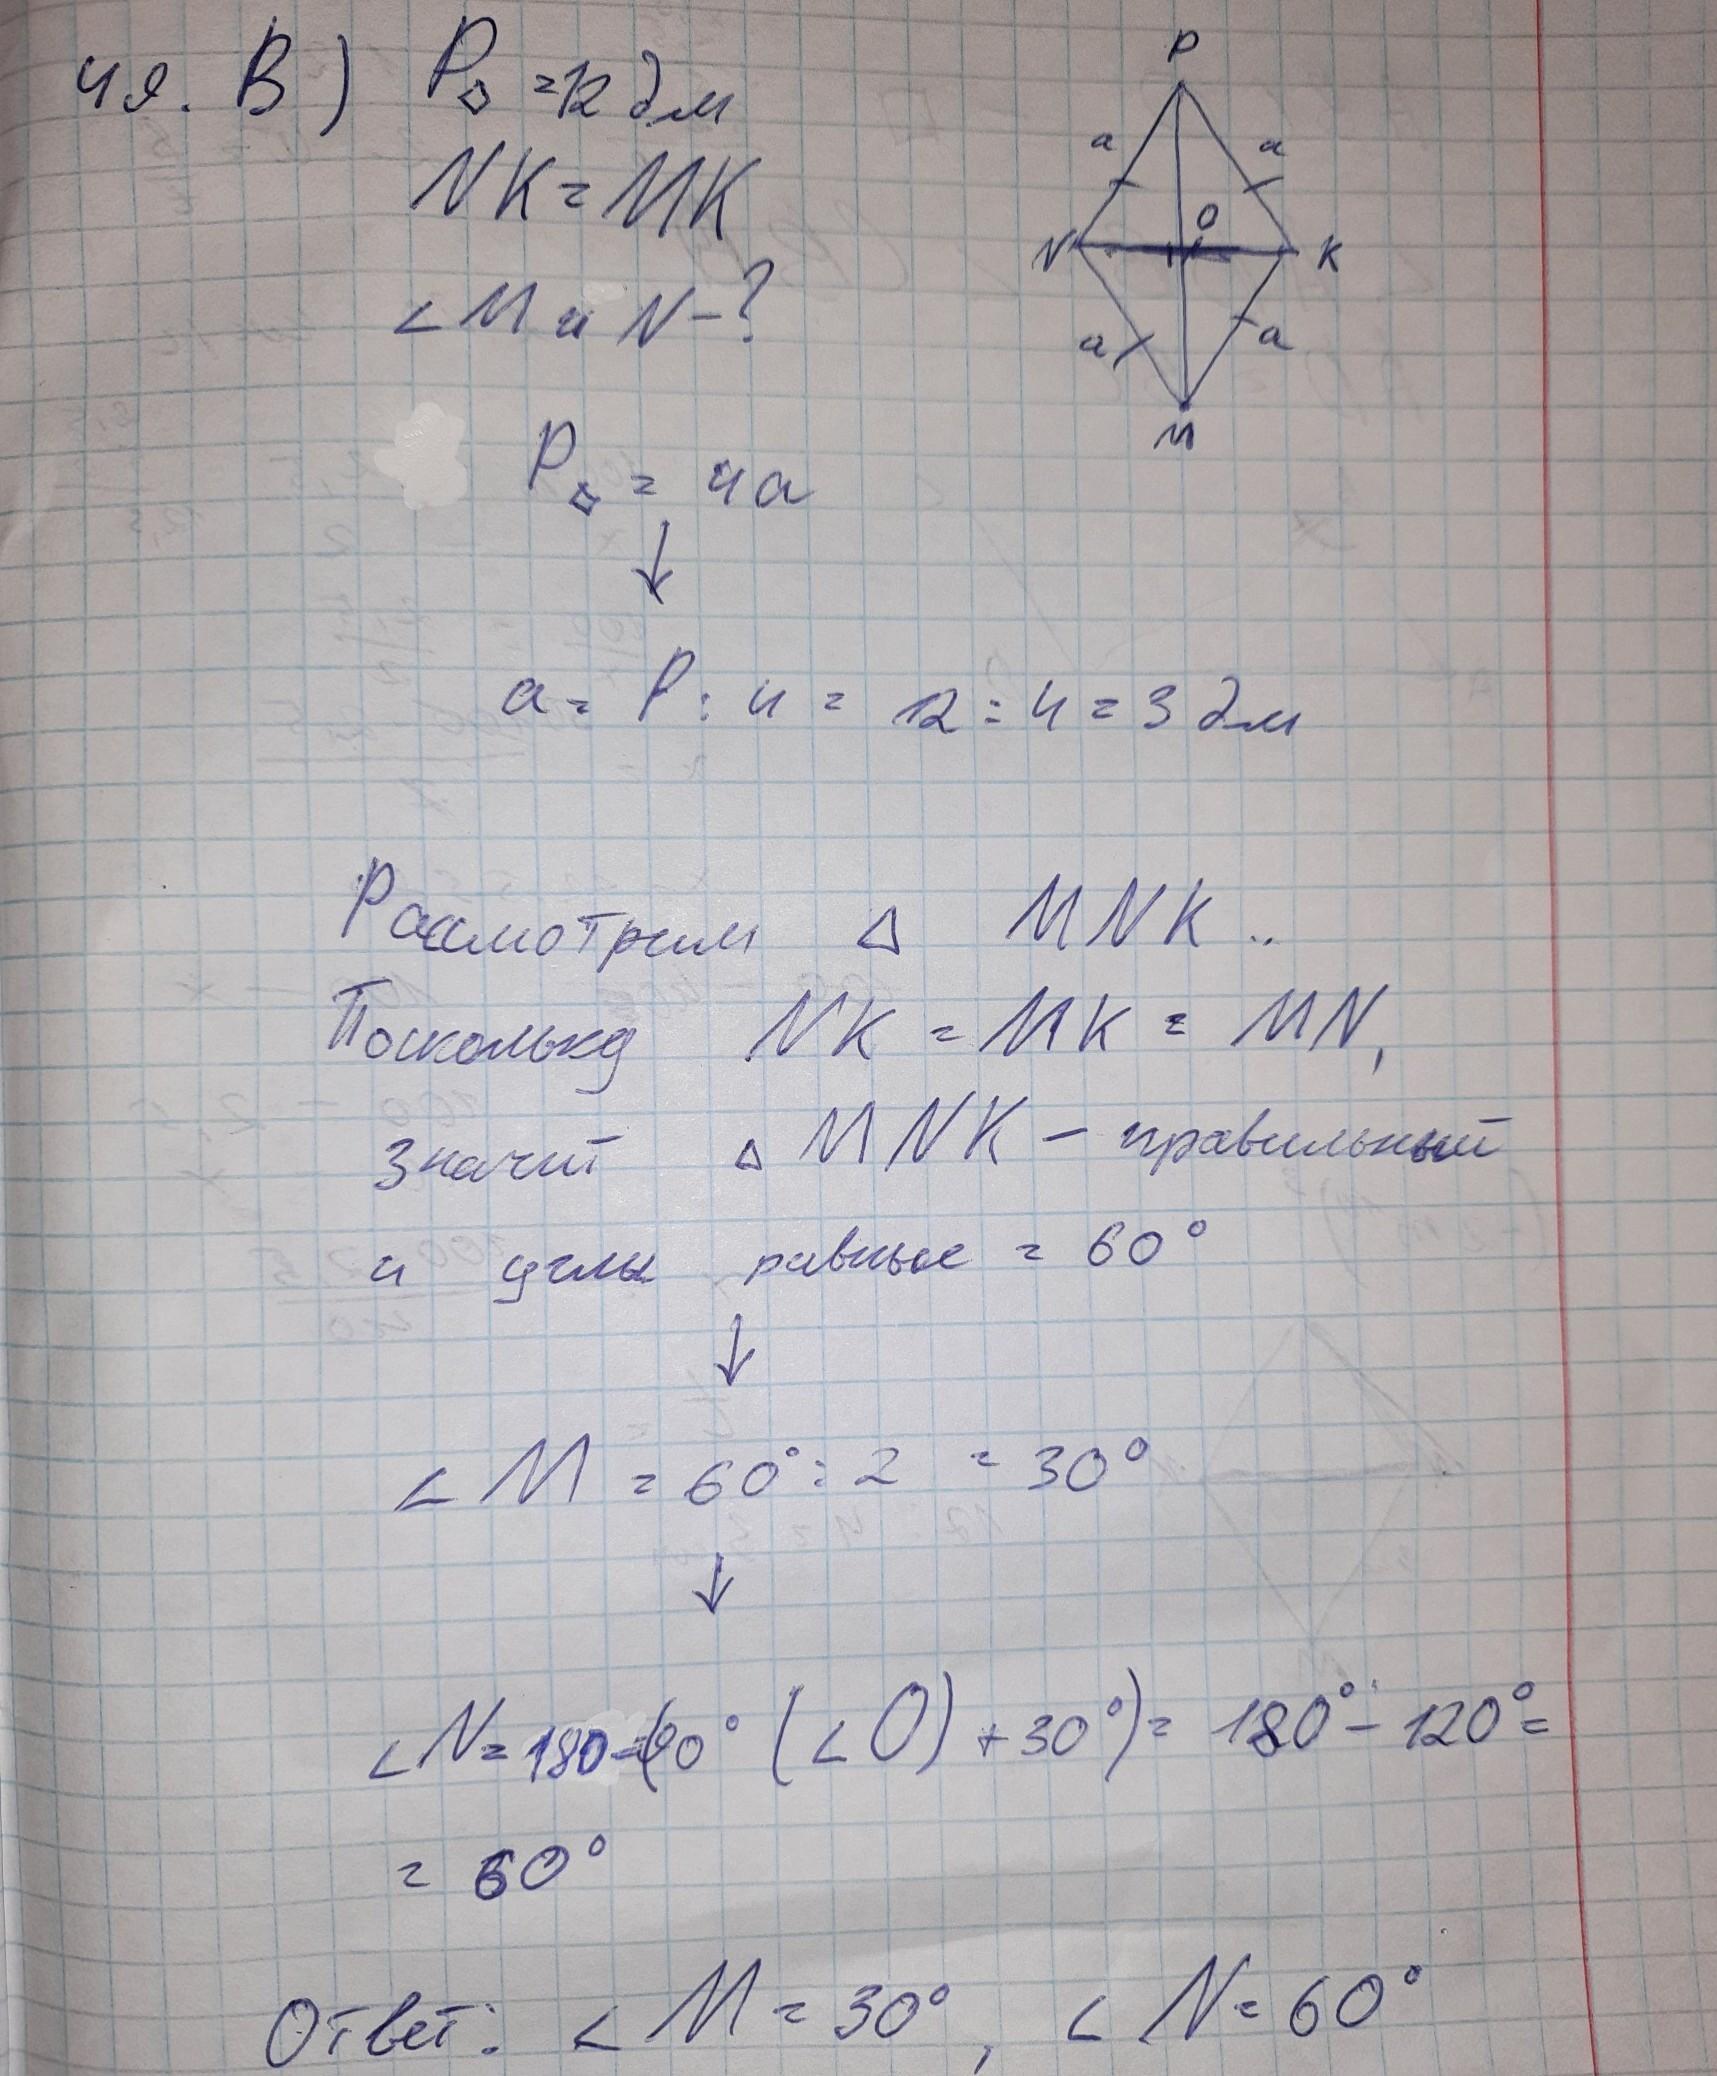 чя. В) P◇ = 12 дм
NK = MK
∠M и N - ?
P
a a
O
N K
a a
M
P◇ = 4a
↓
a = P : 4 = 12 : 4 = 3 дм
Рассмотрим △ MNK..
Поскольку NK = MK = MN,
значит △ MNK - правильный
и углы равные = 60°
↓
∠M = 60° : 2 = 30°
↓
∠N = 180 - (90° (∠O) + 30°) = 180° - 120° =
= 60°
Ответ: ∠M = 30°, ∠N = 60°